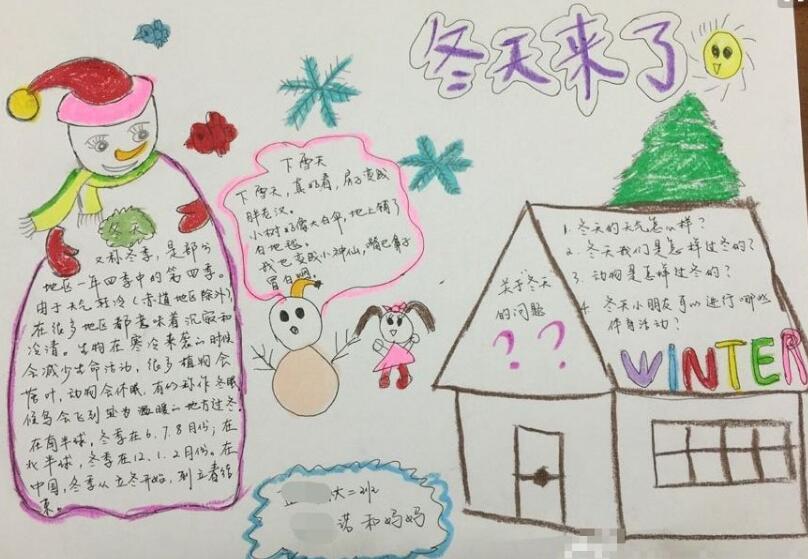 冬天来了
冬天
又称冬季，是部分
地区一年四季中的第四季。
由于天气转冷（赤道地区除外），
在很多地区都意味着沉寂和
冷清。生物在寒冷来袭的时候
会减少生命活动，很多植物会
落叶，动物会休眠，有的称作冬眠
候鸟会飞到
温暖的地方过冬。
在南半球，冬季在6、7、8月份；在
北半球，冬季在12、1、2月份。在
中国，冬季从立冬开始，到立春结
束。
下雪天
下雪天，真好看，房子变成
胖老汉。
小树好像大白伞，地上铺了
白地毯。
我也变成小神仙，嘴巴鼻子
冒白烟。
关于冬天
的问题
？？
1. 冬天的天气怎么样？
2. 冬天我们是怎样过冬的？
3. 动物是怎样过冬的？
4. 冬天小朋友可以进行哪些
体育活动？
WINTER
大二班
诺和妈妈